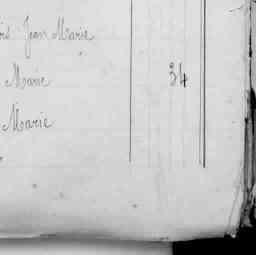 Jean Marie
Marie 34
Marie